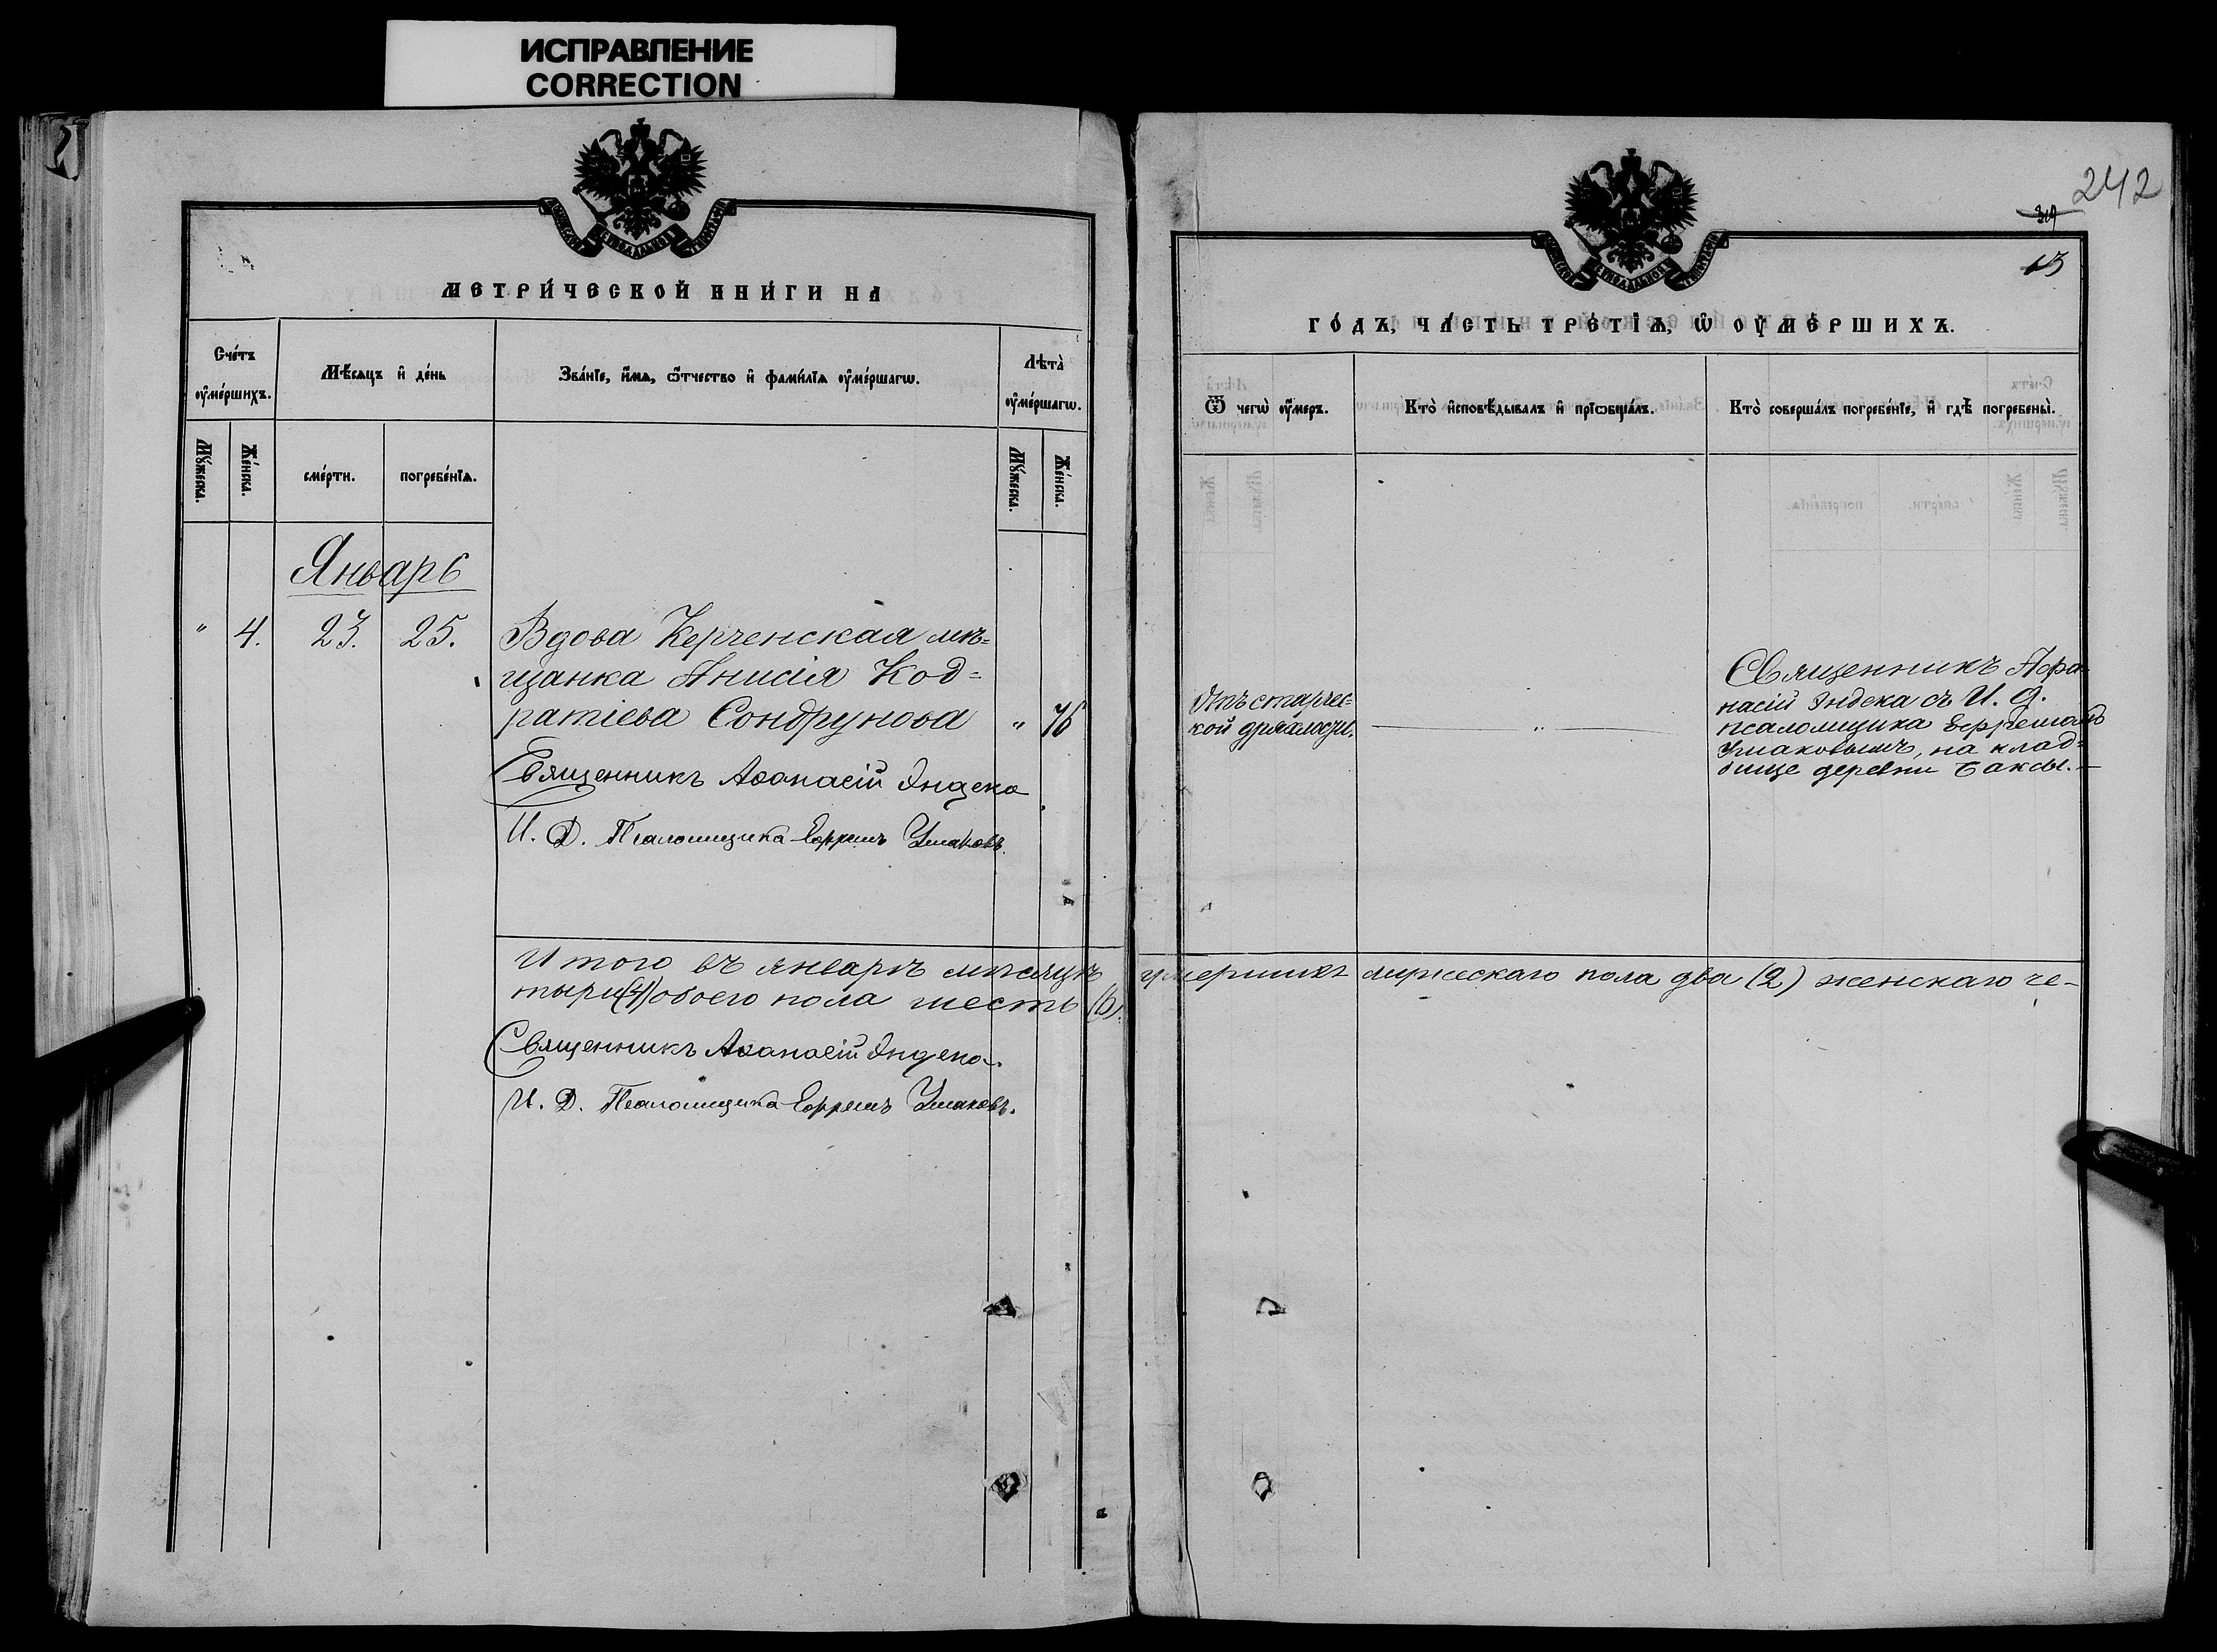 ИСПРАВЛЕНИЕ
CORRECTION
МЕТРИ́ЧЕСКОЙ КНИ́ГИ НА
Сче́тъ ᲂу҆ме́ршихъ.
Мѣ́сѧцъ и҆ де́нь
Зва́нїе, и҆́мѧ, ѻ҆́тчество и҆ фами́лїѧ ᲂу҆ме́ршагѡ.
Лѣта̀ ᲂу҆ме́ршагѡ.
Мꙋ́жеска.
Же́нска.
сме́рти.
погребе́нїѧ.
Мꙋ́жеска.
Же́нска.
Январь
" 4. 23. 25.
Вдова Керченская мѣ=
щанка Анисія Код=
ратіева Сондрунова " 76
Священникъ Аѳанасій Яндека
И. Д. Псаломщика Ефремъ Ушаковъ.
Итого въ январѣ мѣсяцѣ умершихъ мужескаго пола два (2) женскаго че-
тыре (4) обоего пола шесть (6).
Священникъ Аѳанасій Яндека.
И. Д. Псаломщика Ефремъ Ушаковъ.
242
319
13
ГО́ДЪ, ЧА́СТЬ ТРЕ́ТЇѦ, Ѡ҆ ОУ҆МЕ́РШИХЪ.
Ѿ чегѡ̀ ᲂу҆́меръ.
Кто̀ и҆сповѣ́дывалъ и҆ прїѡбща́лъ.
Кто̀ соверша́лъ погребе́нїе, и҆ гдѣ̀ погребены̀.
Отъ старчес=
кой дряхлости.
"
Священникъ Афа=
насій Яндека съ И. д.
псаломщика Ефремомъ
Ушаковымъ, на клад=
бище деревни Баксы.